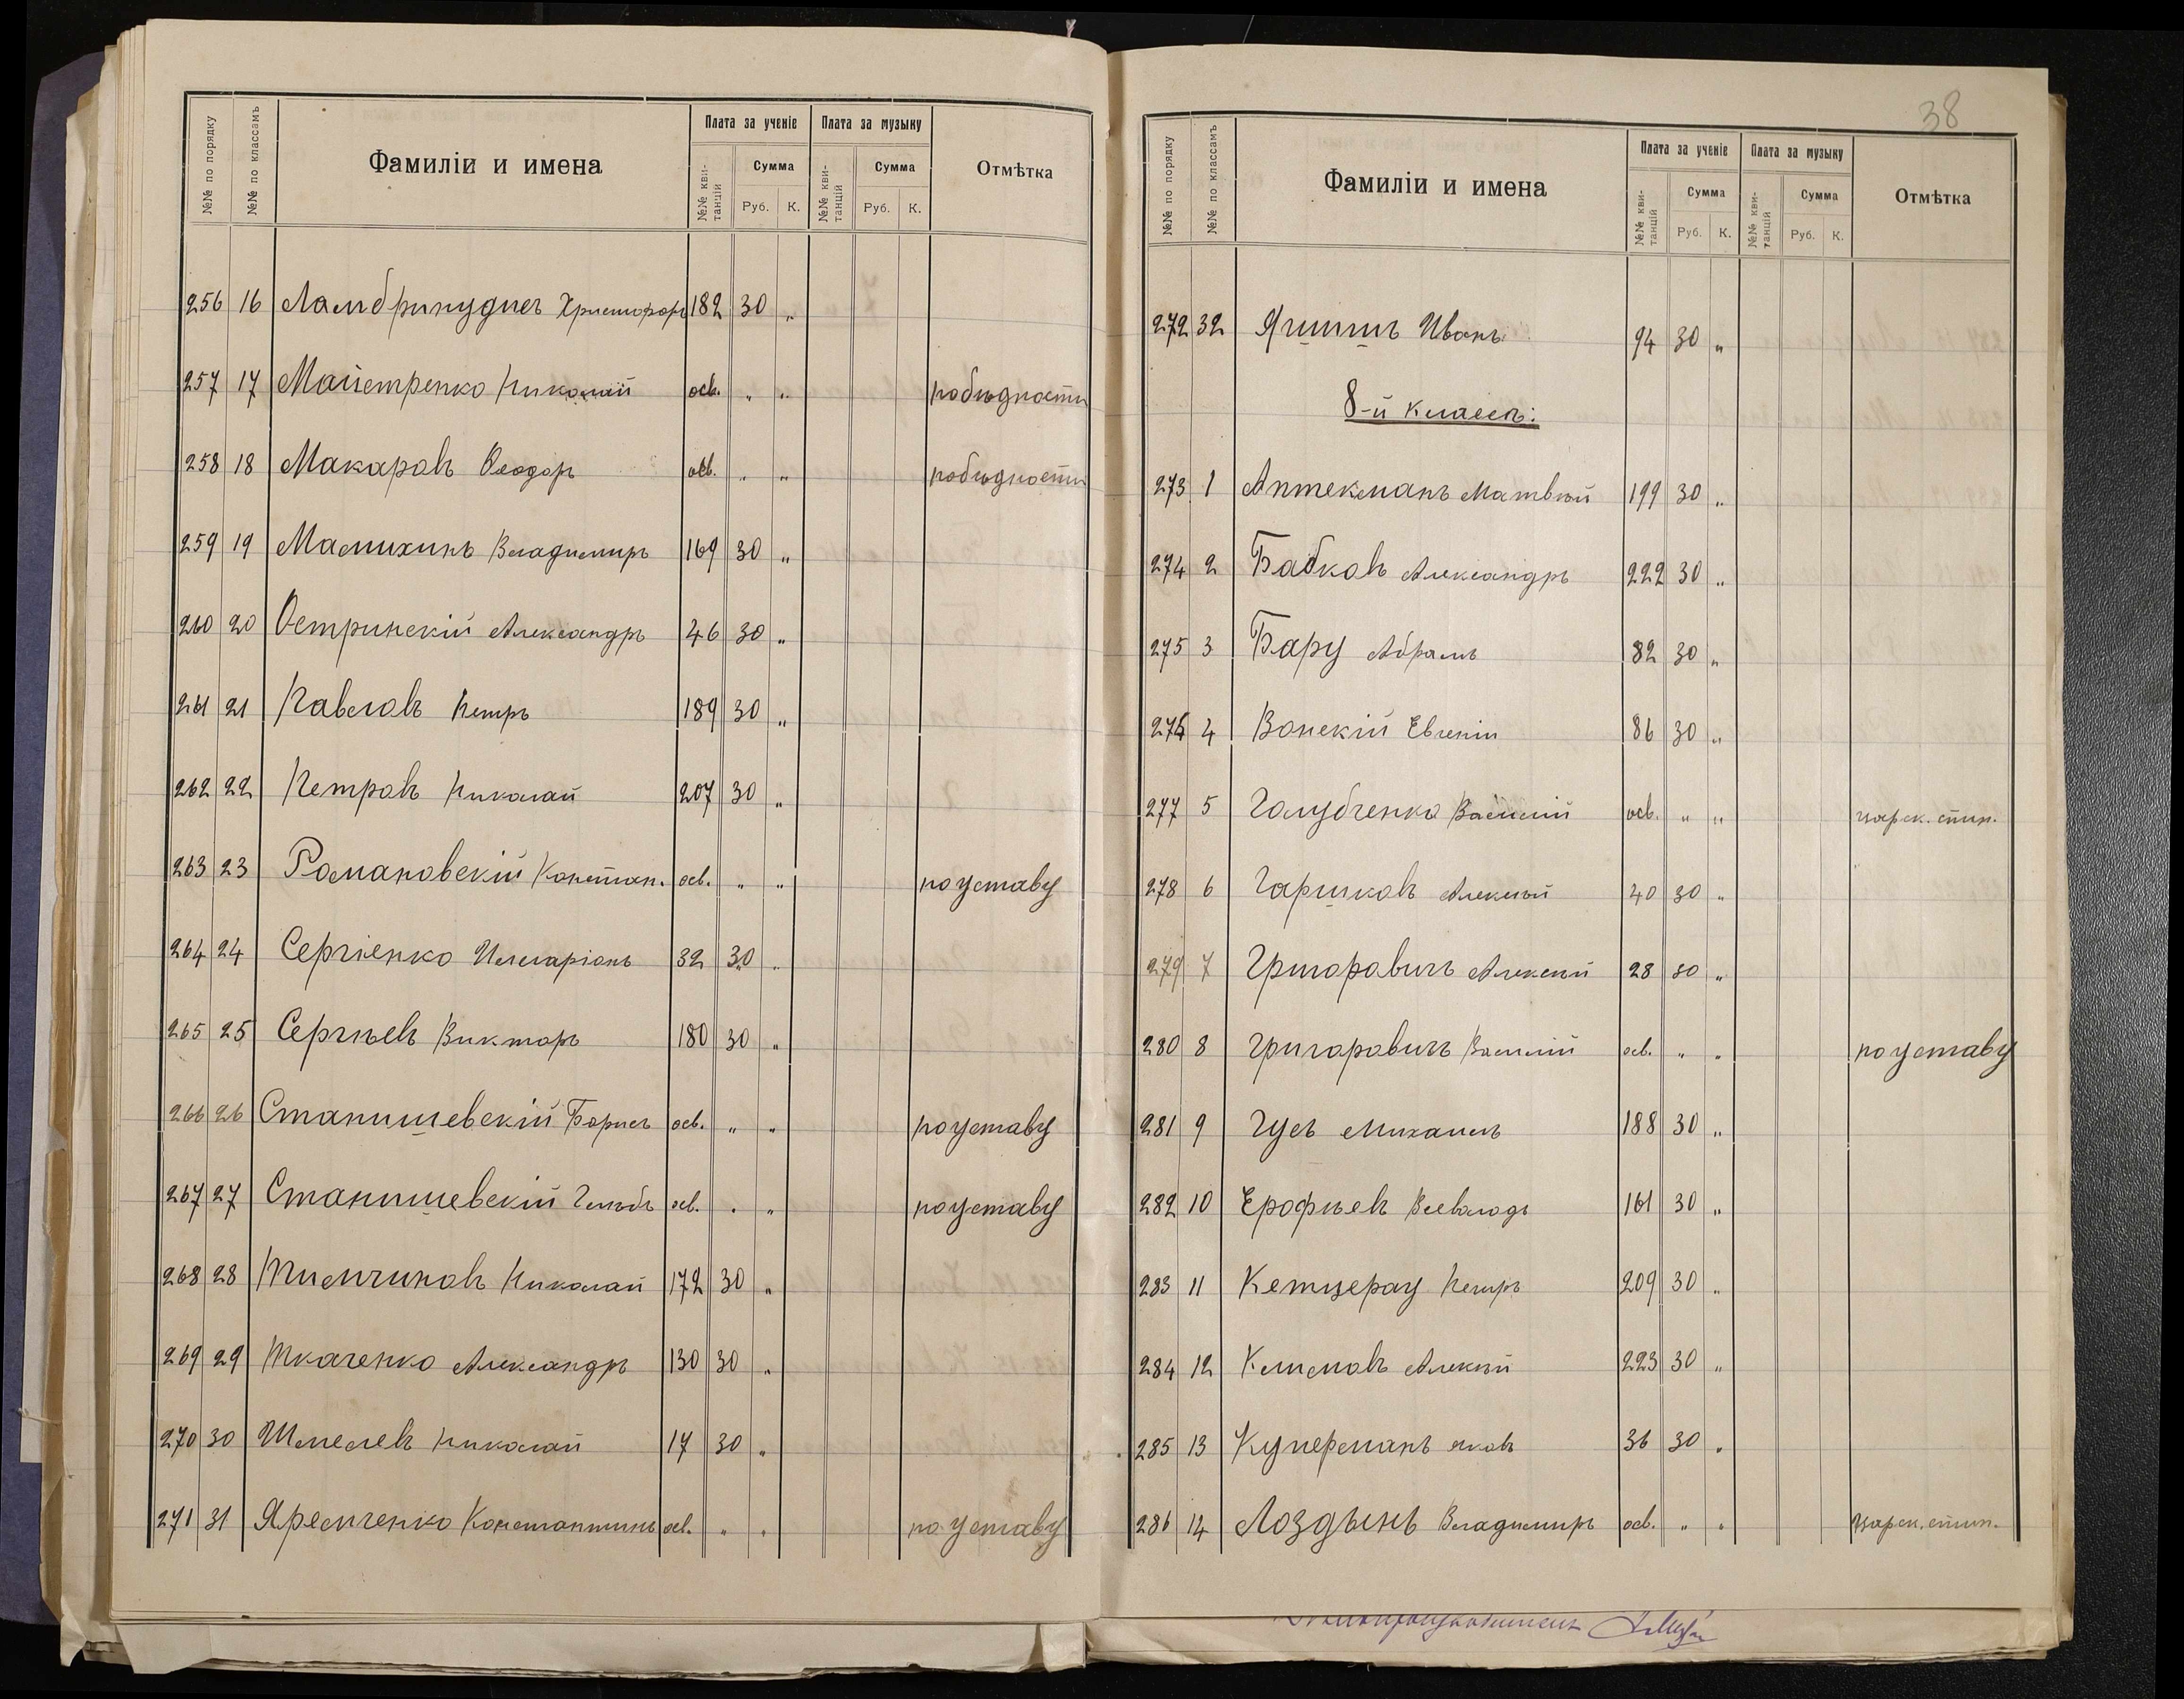 №№ по порядку №№ по классамъ Фамиліи и имена Плата за ученіе Плата за музыку Отмѣтка
№№ кви-танцій Сумма Руб. К. №№ кви-танцій Сумма Руб. К.
256 16 Ламбринудисъ Христофоръ 182 30 „
257 17 Майстренко Николай осв. „ „ по бѣдности
258 18 Макаровъ Ѳеодоръ осв. „ „ по бѣдности
259 19 Мамихинъ Владимиръ 169 30 „
260 20 Островскій Александръ 46 30 „
261 21 Павловъ Петръ 189 30 „
262 22 Петровъ Николай 207 30 „
263 23 Романовскій Констан. осв. „ „ по уставу
264 24 Сергіенко Илларіонъ 32 30 „
265 25 Сергѣевъ Викторъ 180 30 „
266 26 Станишевскій Борисъ осв. „ „ по уставу
267 27 Станишевскій Глѣбъ осв. „ „ по уставу
268 28 Тимчиновъ Николай 172 30 „
269 29 Ткаченко Александръ 130 30 „
270 30 Шмелевъ Николай 17 30 „
271 31 Яремченко Константинъ осв. „ „ по уставу
38
№№ по порядку №№ по классамъ Фамиліи и имена Плата за ученіе Плата за музыку Отмѣтка
№№ кви-танцій Сумма Руб. К. №№ кви-танцій Сумма Руб. К.
272 32 Яшишъ Иванъ 94 30 „
8-й классъ:
273 1 Аптекманъ Матвѣй 199 30 „
274 2 Бабковъ Александръ 222 30 „
275 3 Бару Абрамъ 82 30 „
276 4 Вонскій Евгеній 86 30 „
277 5 Голубченко Василій осв. „ „ царск. стип.
278 6 Горшковъ Алексѣй 40 30 „
279 7 Григоровичъ Алексѣй 28 30 „
280 8 Григоровичъ Василій осв. „ „ по уставу
281 9 Гусъ Михаилъ 188 30 „
282 10 Ерофѣевъ Всеволодъ 161 30 „
283 11 Кетцерау Петръ 209 30 „
284 12 Климовъ Алексѣй 223 30 „
285 13 Куперманъ Яковъ 36 30 „
286 14 Лоздынь Владимиръ осв. „ „ царск. стип.